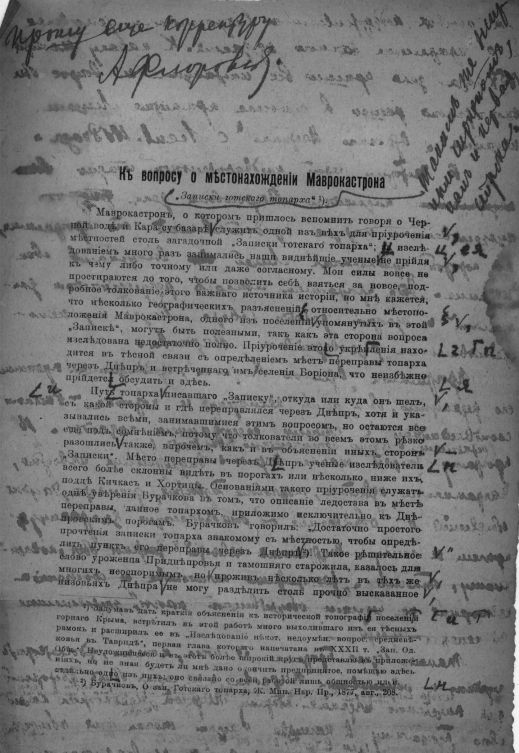 Прошу еще корректуру
Къ вопросу о мѣстонахожденіи Маврокастрона
„Записки готскаго топарха“ ¹).
Маврокастронъ, о которомъ пришлось вспомнить говоря о Чер-
ной водѣ и Кара-су базарѣ служитъ одной изъ вѣхъ для пріуроченія
мѣстностей столь загадочной „Записки готскаго топарха“; изслѣ-
дованіемъ много разъ занимались наши виднѣйшіе ученые не прійдя
къ чему либо точному или даже согласному. Мои силы вовсе не
простираются до того, чтобы позволить себѣ взяться за новое, под-
робное толкованіе этого важнаго источника исторіи, но мнѣ кажется,
что нѣсколько географическихъ разъясненій относительно мѣстопо-
ложенія Маврокастрона, одного изъ поселеній упомянутыхъ въ этой
„Запискѣ“, могутъ быть полезными, такъ какъ эта сторона вопроса
изслѣдована недостаточно полно. Пріуроченіе этого укрѣпленія нахо-
дится въ тѣсной связи съ опредѣленіемъ мѣстъ переправы топарха
черезъ Днѣпръ и встрѣченнаго имъ селенія Боріона, что неизбѣжно
прійдется обсудить и здѣсь.
Путь топарха писавшаго „Записку“, откуда или куда онъ шелъ,
съ какой стороны и гдѣ переправлялся черезъ Днѣпръ, хотя и ука-
зывались всѣми, занимавшимися этимъ вопросомъ, но остаются все
еще подъ сомнѣніемъ, потому что толкователи во всемъ этомъ рѣзко
разошлись также, впрочемъ, какъ и въ объясненіи иныхъ сторонъ
„Записки“. Мѣсто переправы черезъ Днѣпръ ученые изслѣдователи
всего болѣе склонны видѣть въ порогахъ или нѣсколько ниже ихъ,
подлѣ Кичкаса и Хортицы. Основаніями такого пріуроченія служатъ
однѣ увѣренія Бурачкова въ томъ, что описаніе ледостава въ мѣстѣ
переправы, данное топархомъ, приложимо исключительно къ Днѣ-
провскимъ порогамъ. Бурачковъ говоритъ: „Достаточно простого
прочтенія записки топарха знакомому съ мѣстностью, чтобы опредѣ-
лить пунктъ его переправы черезъ Днѣпръ ²). Такое рѣшительное
слово уроженца Приднѣпровья и тамошняго старожила, казалось для
многихъ неоспоримымъ, но проживъ нѣсколько лѣтъ въ тѣхъ же
низовьяхъ Днѣпра не могу раздѣлить столь прочно высказанное
¹) Задумавъ дать краткія объясненія къ исторической топографіи поселеній
горнаго Крыма, встрѣтилъ въ этой работѣ много выходившаго изъ ея тѣсныхъ
рамокъ и расширилъ ее въ „Изслѣдованіе нѣкот. недоумѣн. вопрос. средневѣ-
ковья въ Тавридѣ“, первая глава котораго напечатана въ XXXII т. „Зап. Од.
²) Бурачковъ, О зап. Готскаго топарха, Ж. Мин. Нар. Пр., 1877, авг., 208.